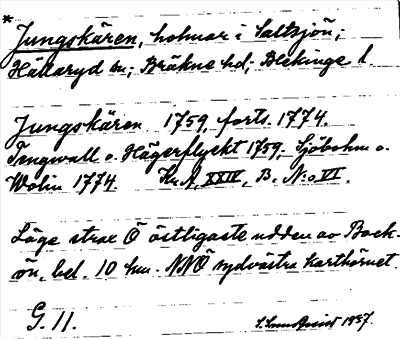 * Jungskären, holmar i Saltsjön;
Hällaryd sn; Bräkne hd; Blekinge l.
Jungskären 1759, forts. 1774.
Tengwall o. Hägerflyckt 1759. Sjöbohm o.
Wolin 1774. Kr.A. XXIV, B. N:o VI.
Läge strax Ö östligaste udden av Bock-
ön, bel. 10 hm. NNÖ sydvästra karthörnet.
G. 11. S. Lundquist 1937.